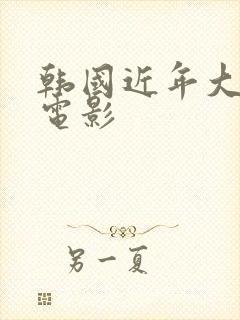 韩國近年大
電影
另一夏